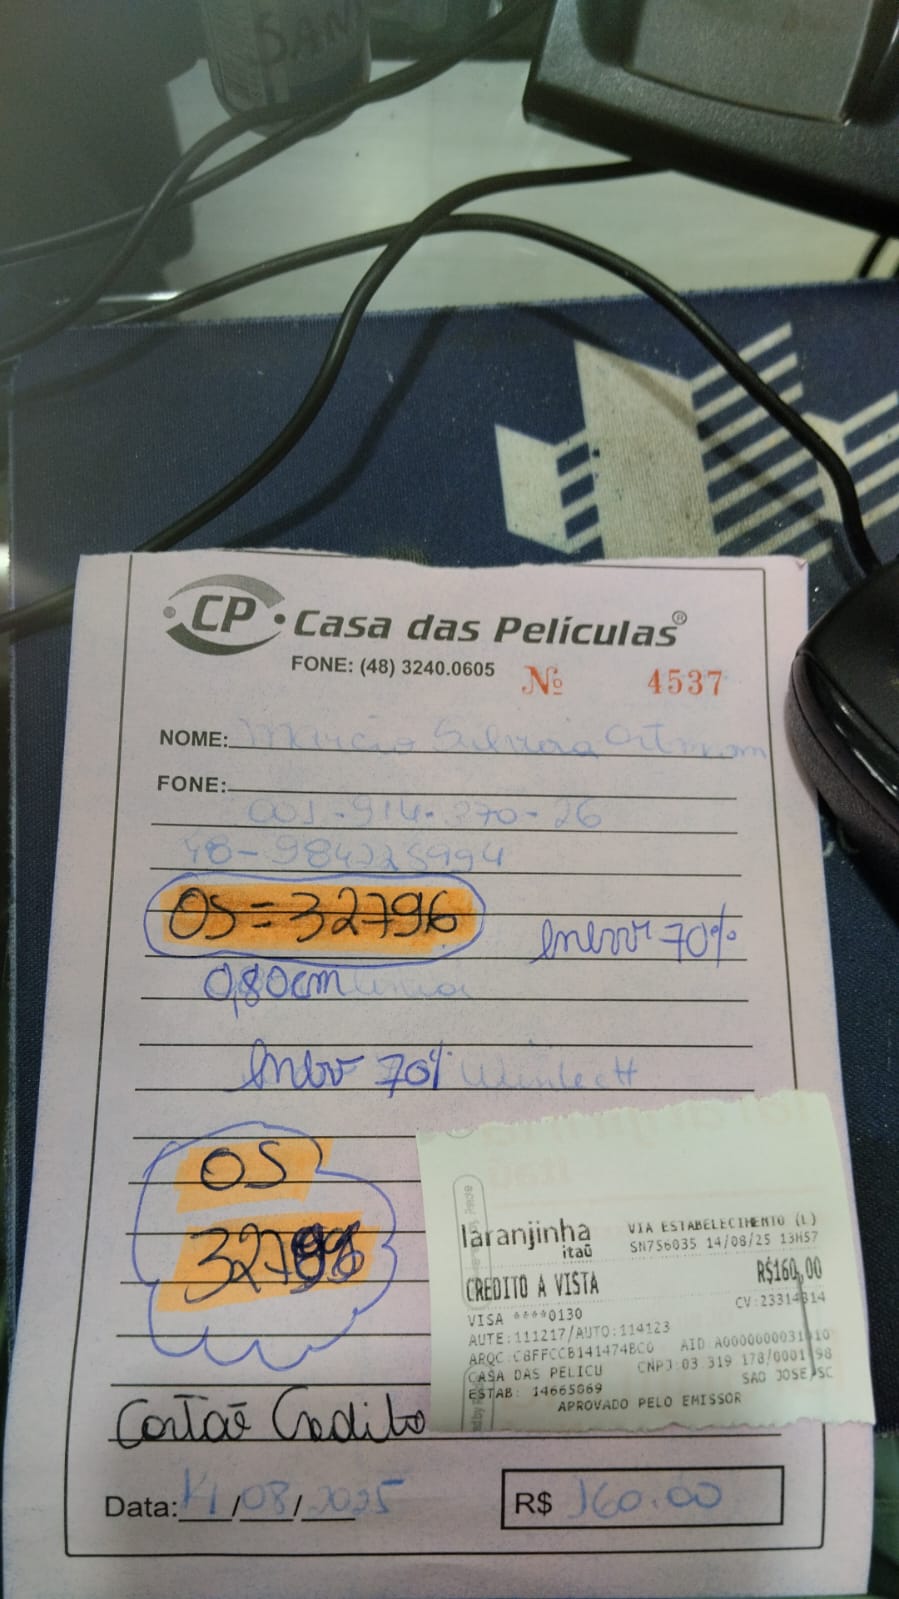 SAN
CP Casa das Películas®
FONE: (48) 3240.0605 Nº 4537
NOME: Marcio Silvera
FONE:
001-914-270-26
48-984225994
OS = 32796
70%
0,80cm
70%
OS
327
Cartaõ Credito
laranjinha
itaú
VIA ESTABELECIMENTO (L)
SN756035 14/08/25 13H57
CREDITO A VISTA R$160,00
VISA ****0130 CV:23314814
AUTE:111217/AUTO:114123
ARQC:C8FFCCB141474BC0
CASA DAS PELICU CNPJ:03.319.178/0001-98
ESTAB: 14665069 SAO JOSE/SC
APROVADO PELO EMISSOR
Data: 14/08/2025 R$ 160.00